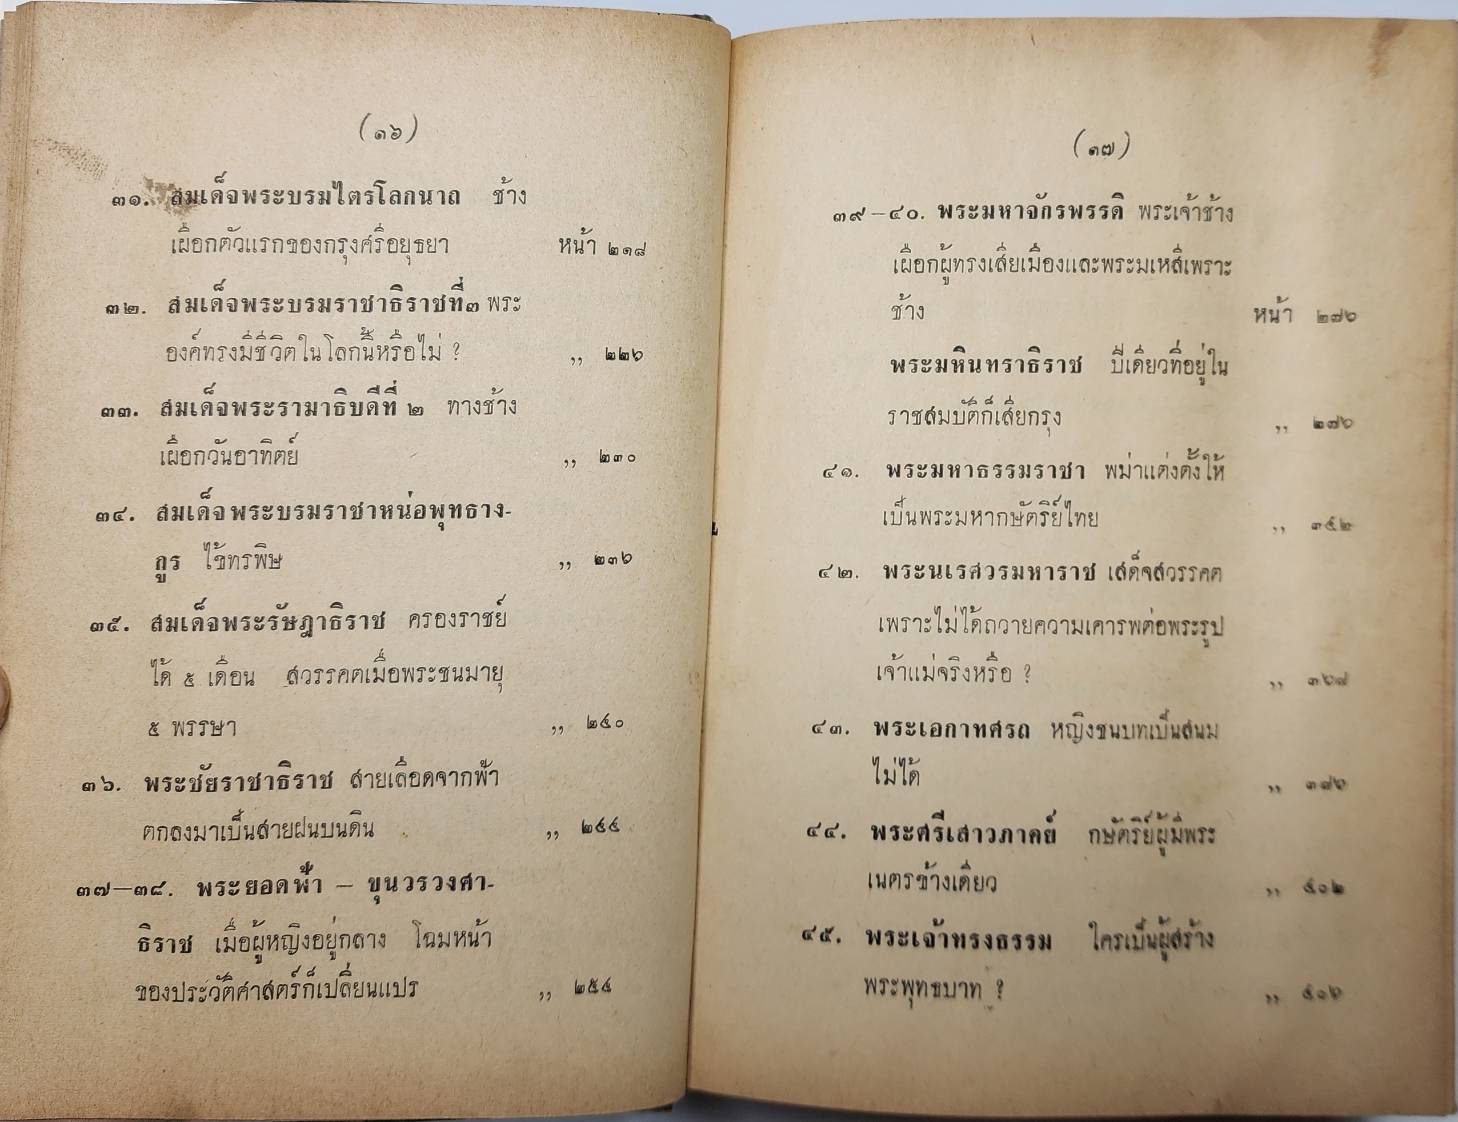 (๑๖)
๓๑. สมเด็จพระบรมไตรโลกนาถ ช้าง
เผือกตัวแรกของกรุงศรีอยุธยา หน้า ๒๑๘
๓๒. สมเด็จพระบรมราชาธิราชที่๓ พระ
องค์ทรงมีชีวิตในโลกนี้หรือไม่ ? ,, ๒๒๖
๓๓. สมเด็จพระรามาธิบดีที่ ๒ ทางช้าง
เผือกวันอาทิตย์ ,, ๒๓๐
๓๔. สมเด็จพระบรมราชาหน่อพุทธาง-
กูร ไข้ทรพิษ ,, ๒๓๖
๓๕. สมเด็จพระรัษฎาธิราช ครองราชย์
ได้ ๕ เดือน สวรรคตเมื่อพระชนมายุ
๕ พรรษา ,, ๒๔๐
๓๖. พระชัยราชาธิราช สายเลือดจากฟ้า
ตกลงมาเป็นสายฝนบนดิน ,, ๒๔๔
๓๗—๓๘. พระยอดฟ้า – ขุนวรวงศา-
ธิราช เมื่อผู้หญิงอยู่กลาง โฉมหน้า
ของประวัติศาสตร์ก็เปลี่ยนแปร ,, ๒๕๔
(๑๗)
๓๙—๔๐. พระมหาจักรพรรดิ พระเจ้าช้าง
เผือกผู้ทรงเสียเมืองและพระมเหสีเพราะ
ช้าง หน้า ๒๗๖
พระมหินทราธิราช ปีเดียวที่อยู่ใน
ราชสมบัติก็เสียกรุง ,, ๒๗๖
๔๑. พระมหาธรรมราชา พม่าแต่งตั้งให้
เป็นพระมหากษัตริย์ไทย ,, ๓๕๒
๔๒. พระนเรศวรมหาราช เสด็จสวรรคต
เพราะไม่ได้ถวายความเคารพต่อพระรูป
เจ้าแม่จริงหรือ ? ,, ๓๖๗
๔๓. พระเอกาทศรถ หญิงชนบทเป็นสนม
ไม่ได้ ,, ๓๘๖
๔๔. พระศรีเสาวภาคย์ กษัตริย์ผู้มีพระ
เนตรข้างเดียว ,, ๔๐๒
๔๕. พระเจ้าทรงธรรม ใครเป็นผู้สร้าง
พระพุทธบาท ? ,, ๔๐๖